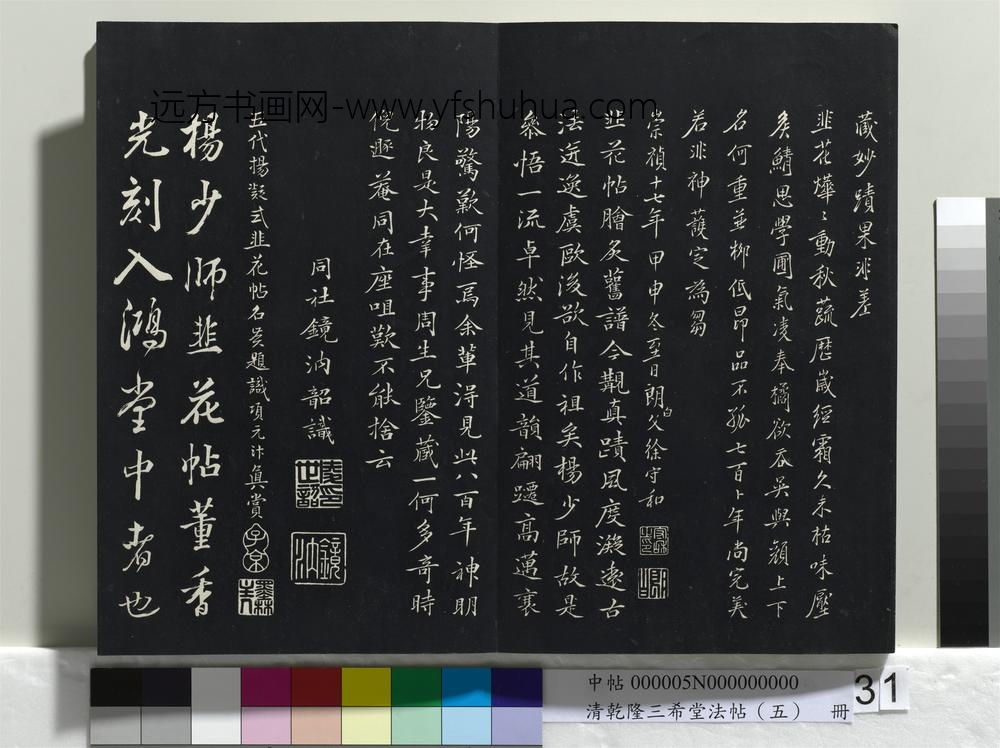 远方书画网-www.yfshuhua.com
藏妙蹟果非差
韭花燁〻動秋蔬歷歲經霜久未枯味壓
矦鯖思學圃氣凌奉橘欲吞吳與顏上下
名何重並柳低昂品不孤七百卜年尚完美
若非神護定為芻
崇禎十七年甲申冬至日朗父白徐守和
韭花帖膾炙舊譜今觀真蹟風度凝遠古
法迸逸虞歐後欲自作祖矣楊少師故是
叅悟一流卓然見其道韻翩躚高邁襄
陽驚歎何怪焉余輩淂見此六百年神明
物良是大幸事周生兄鑒藏一何多奇時
倪遯菴同在座咀歎不能捨云
同社鏡汭韶識
鏡汭
五代揚凝式韭花帖名賢題識項元汴真賞
子京
墨林
楊少師韭花帖董香
光刻入鴻堂中者也
中帖 000005N000000000
清乾隆三希堂法帖（五） 冊
31